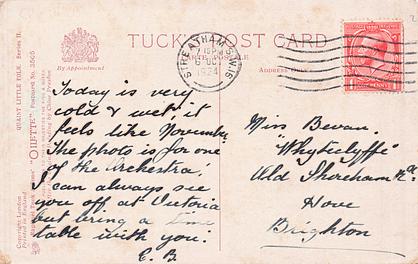 TUCK'S POST CARD
By Appointment
ADDRESS ONLY
STREATHAM S.W.16
7 15 PM
6 OC
1924
QUAINT LITTLE FOLK. Series II.
"OILETTE" Postcard No. 3565
Copyright London
Printed in England
Today is very
cold & wet it
feels like November
The photo is for one
of the Orchestra,
I can always see
you off at Victoria
but bring a time
table with you.
E.B.
Miss Bevan.
"Whyticlyffe"
Old Shoreham Rd
Hove
Brighton